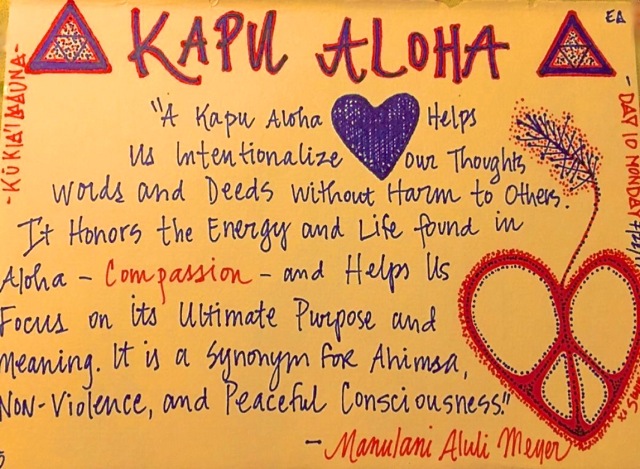 KAPU ALOHA
EA
-KŪ KIA'I MAUNA-
"A Kapu Aloha Helps
Us Intentionalize our Thoughts
Words and Deeds without Harm to Others.
It Honors the Energy and Life found in
Aloha - Compassion - and Helps Us
Focus on its Ultimate Purpose and
Meaning. It is a Synonym for Ahimsa,
Non-Violence, and Peaceful Consciousness."
- Manulani Aluli Meyer
- DAY 10 MONDAY